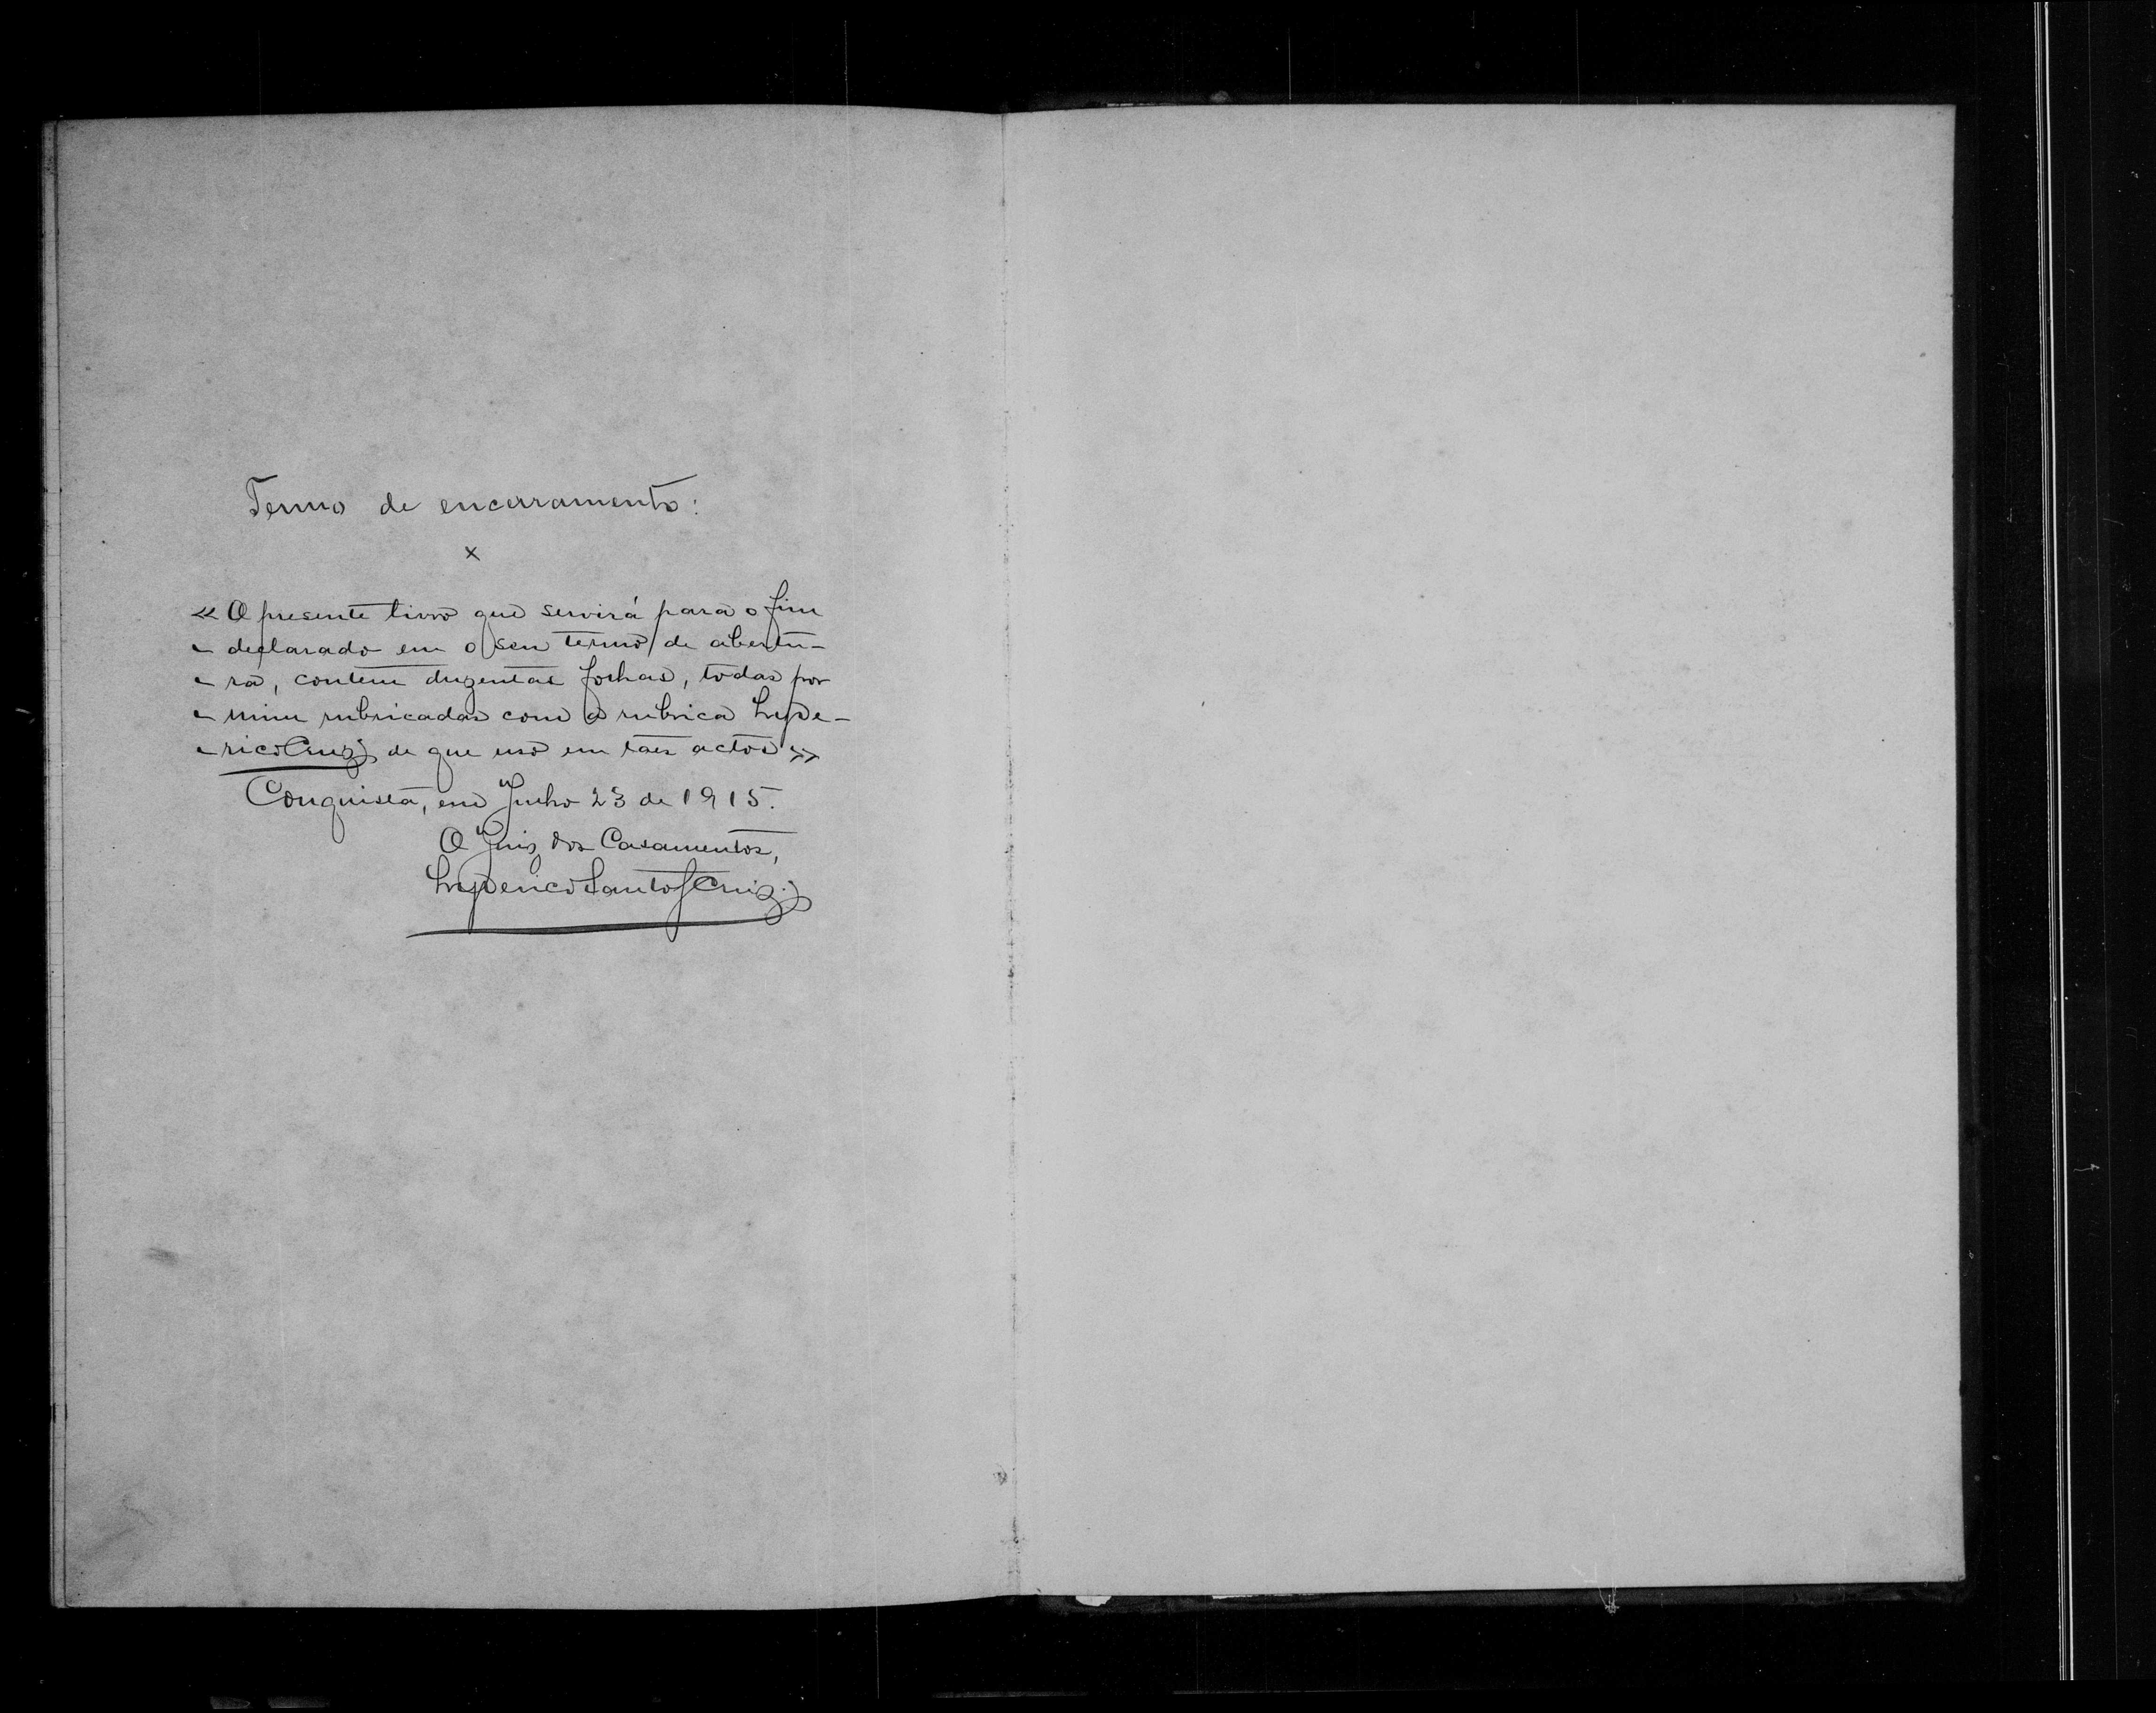 Termo de encerramento:
x
« O presente livro que servirá para o fim
« declarado em o seu termo de abertu-
« ra, contem duzentas folhas, todas por
« mim rubricadas com a rubrica Lype-
« rico Cruz, de que uso em taes actos »
Conquista, em Junho 23 de 1915.
O Juiz dos Casamentos,
Lyperico Santos Cruz